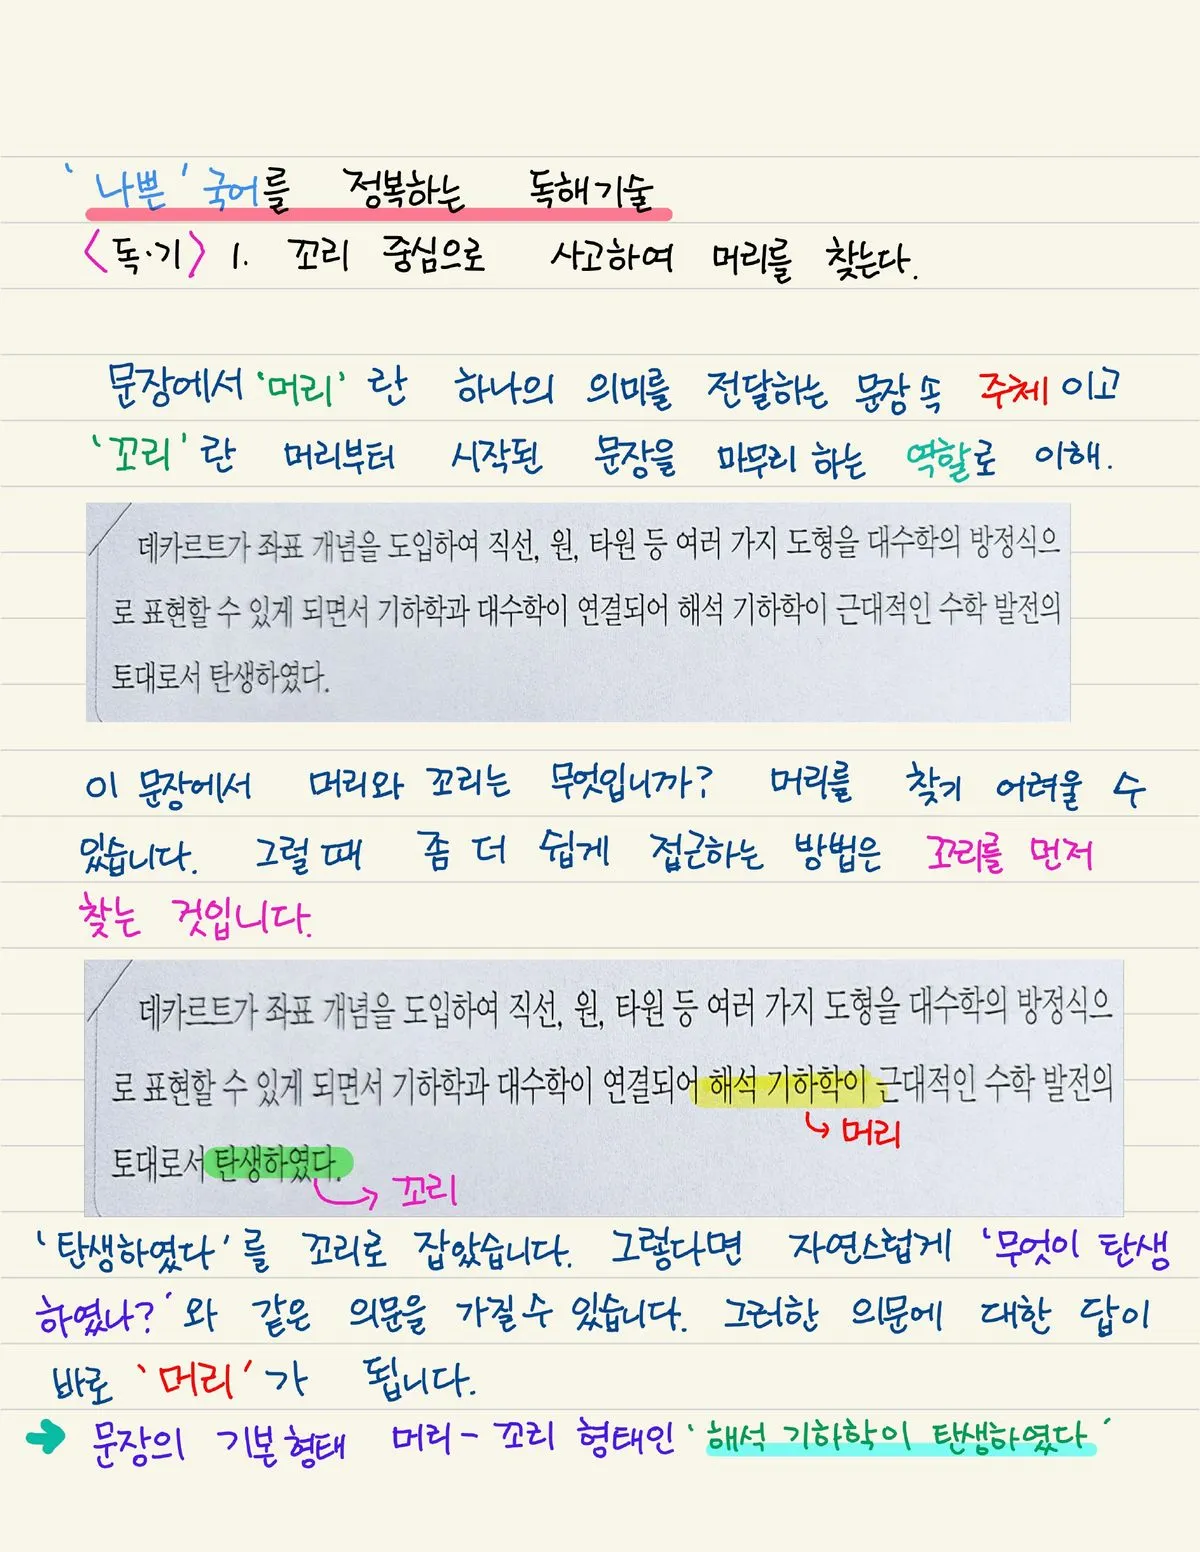 '나쁜' 국어를 정복하는 독해기술
<독·기> 1. 꼬리 중심으로 사고하여 머리를 찾는다.
문장에서 '머리'란 하나의 의미를 전달하는 문장 속 주체이고
'꼬리'란 머리부터 시작된 문장을 마무리 하는 역할로 이해.
데카르트가 좌표 개념을 도입하여 직선, 원, 타원 등 여러 가지 도형을 대수학의 방정식으
로 표현할 수 있게 되면서 기하학과 대수학이 연결되어 해석 기하학이 근대적인 수학 발전의
토대로서 탄생하였다.
이 문장에서 머리와 꼬리는 무엇입니까? 머리를 찾기 어려울 수
있습니다. 그럴 때 좀 더 쉽게 접근하는 방법은 꼬리를 먼저
찾는 것입니다.
데카르트가 좌표 개념을 도입하여 직선, 원, 타원 등 여러 가지 도형을 대수학의 방정식으
로 표현할 수 있게 되면서 기하학과 대수학이 연결되어 해석 기하학이 근대적인 수학 발전의
머리
토대로서 탄생하였다.
꼬리
'탄생하였다'를 꼬리로 잡았습니다. 그렇다면 자연스럽게 '무엇이 탄생
하였나?'와 같은 의문을 가질 수 있습니다. 그러한 의문에 대한 답이
바로 '머리'가 됩니다.
→ 문장의 기본형태 머리-꼬리 형태인 '해석 기하학이 탄생하였다'